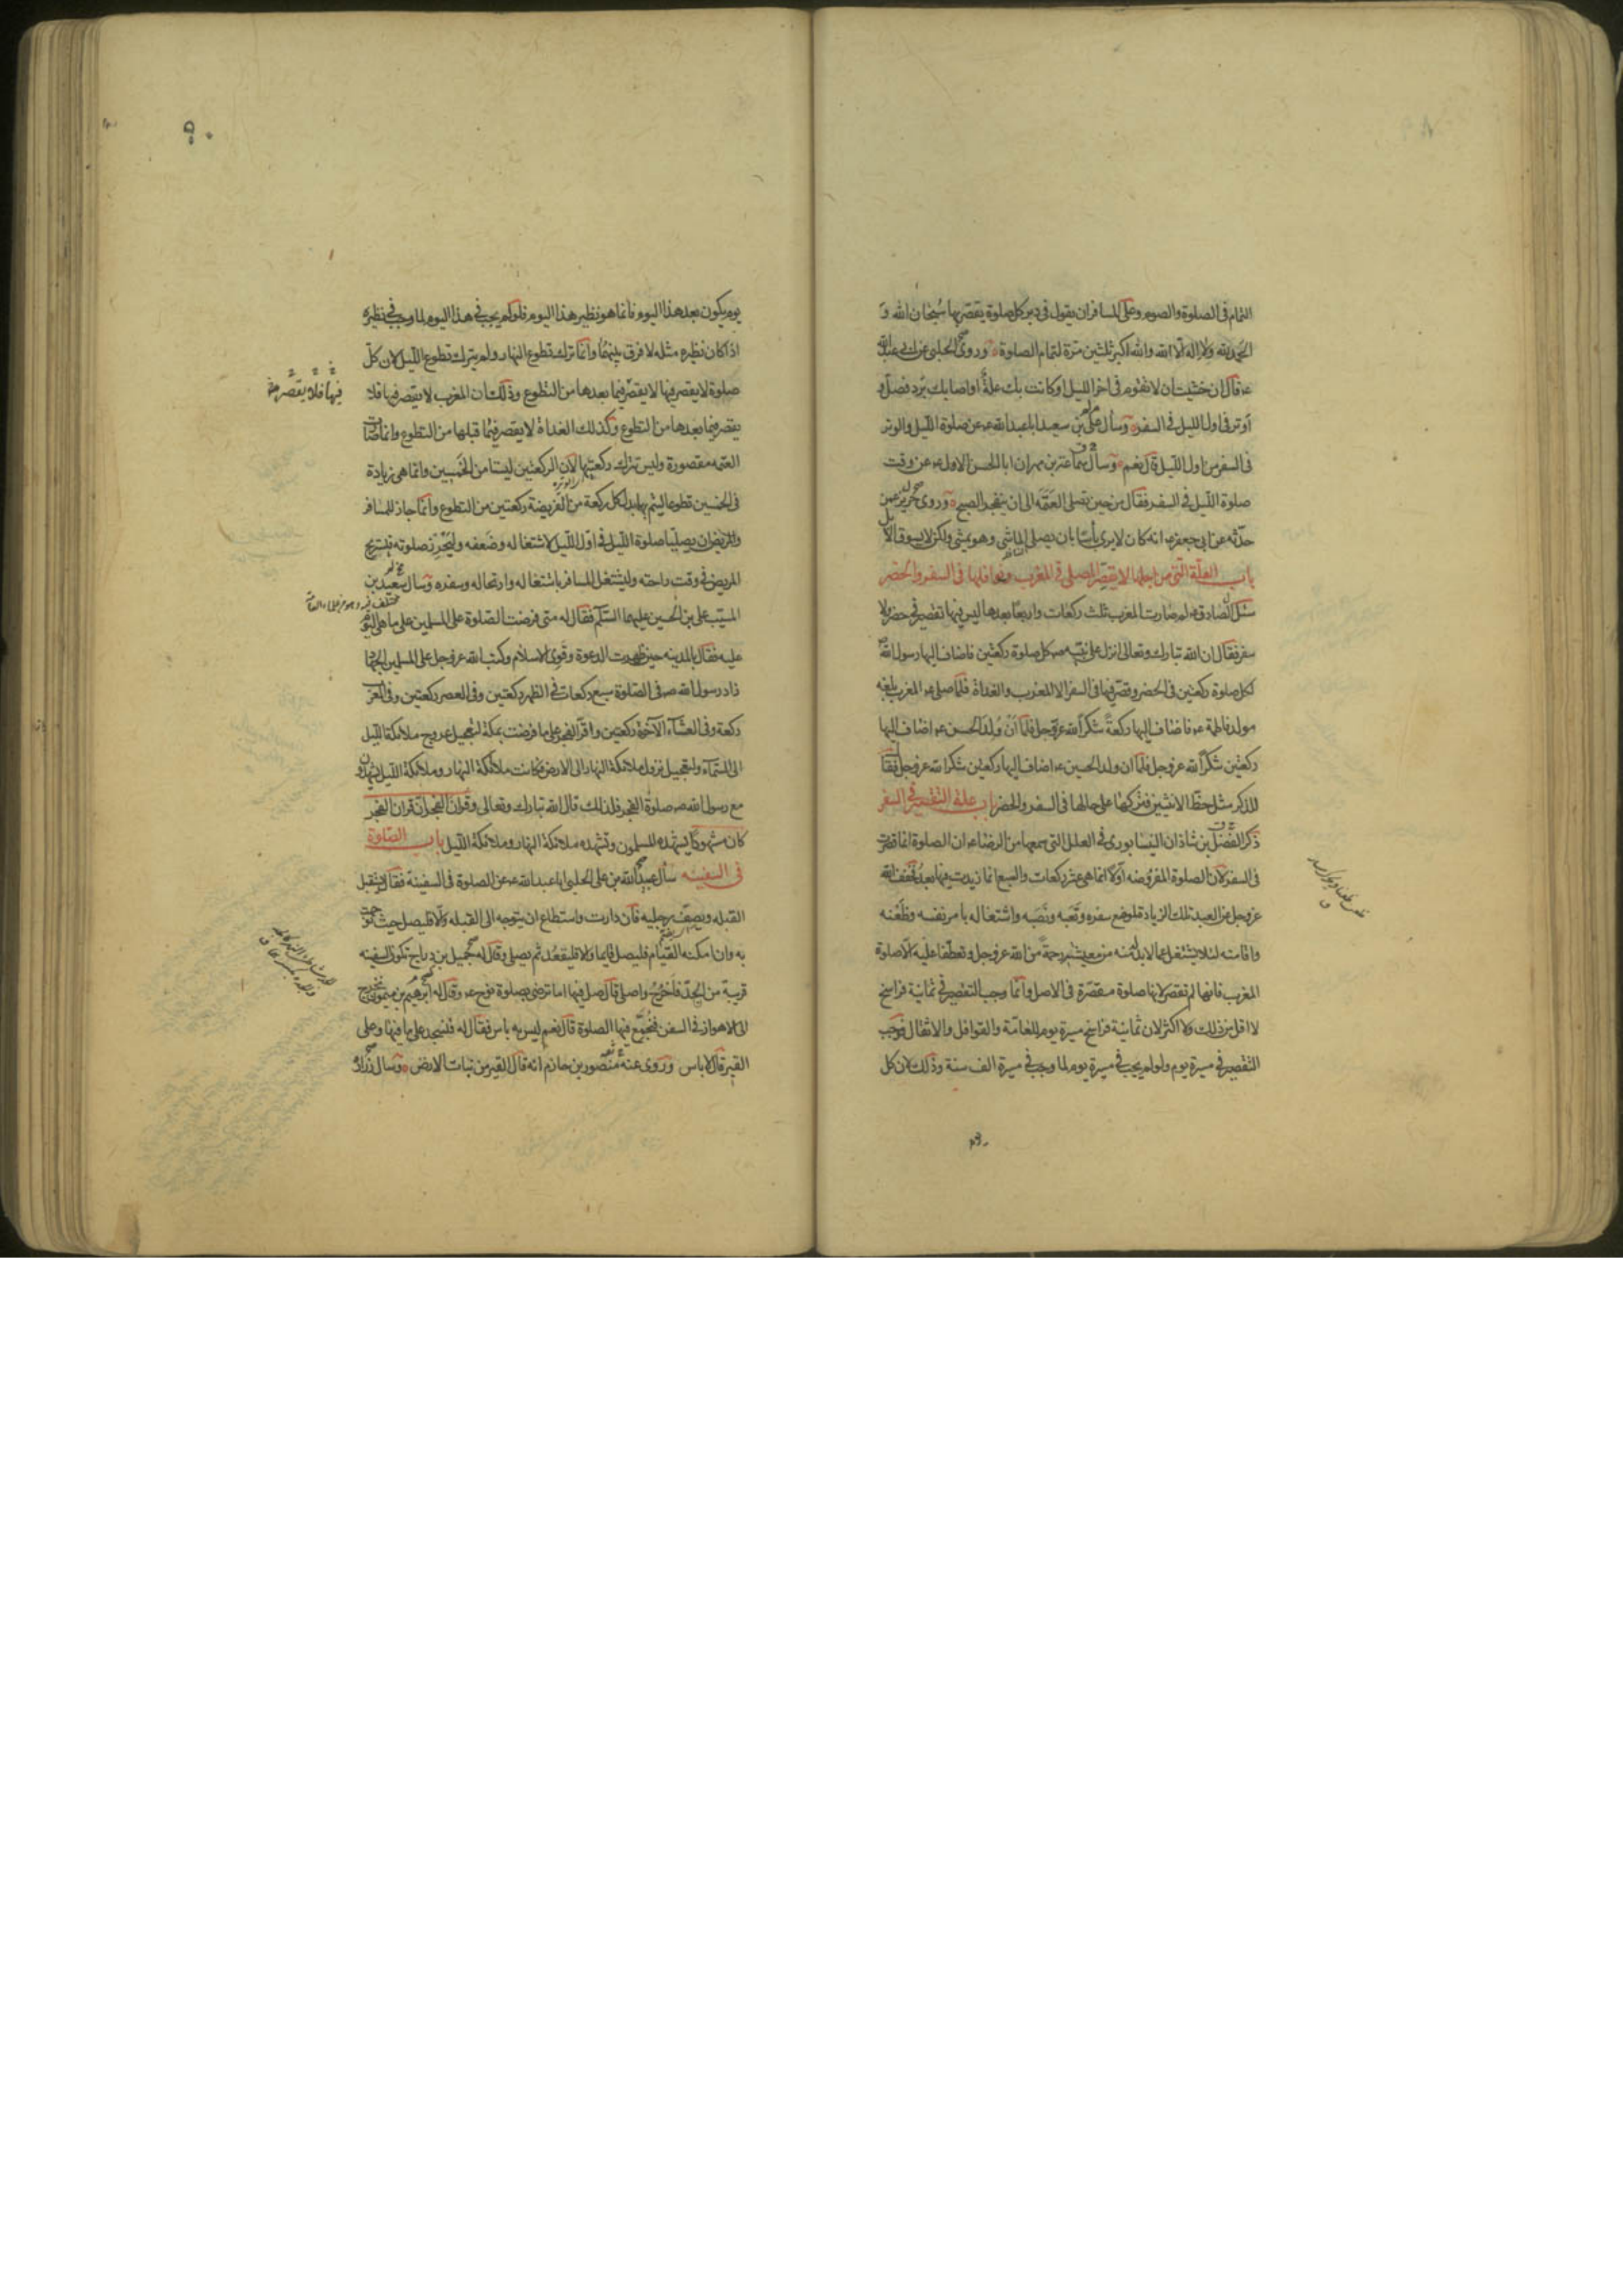 التمام فى الصلوة والصوم وعلى المسافر ان يقول فى دبر كل صلوة يقصرها سبحان الله و
الحمد لله ولا اله الا الله والله اكبر ثلثين مرة لتمام الصلوة وروى الحلبى عن ابى عبدالله
ع قال ان خشيت ان لا تقوم فى اخر الليل او كانت بك علة او اصابك برد فصل و
اوتر فى اول الليل فى السفر وسأل على بن سعيد ابا عبدالله ع عن صلوة الليل والوتر
فى السفر من اول الليل قال نعم وسأل سماعة بن مهران ابا الحسن الاول ع عن وقت
صلوة الليل فى السفر فقال من حين تصلى العتمة الى ان ينفجر الصبح وروى حريز عمن
حدثه عن ابى جعفر ع انه كان لا يرى بأسا بان يصلى الماشى وهو يمشى ولكن لا يسوق الابل
باب العلة التى من اجلها لا يقصر المصلى فى المغرب ونوافلها فى السفر والحضر
سئل الصادق ع لم صارت المغرب ثلث ركعات واربعا بعدها ليس فيها تقصير فى حضر ولا
سفر فقال ان الله تبارك وتعالى انزل على نبيه ص كل صلوة ركعتين فاضاف اليها رسول الله ص
لكل صلوة ركعتين فى الحضر وقصر فيها فى السفر الا المغرب والغداة فلما صلى ع المغرب بلغه
مولد فاطمة ع فاضاف اليها ركعة شكرا لله عز وجل فلما ان ولد الحسن ع اضاف اليها
ركعتين شكرا لله عز وجل فلما ان ولد الحسين ع اضاف اليها ركعتين شكرا لله عز وجل فقال
للذكر مثل حظ الانثيين فتركها على حالها فى السفر والحضر باب علة التقصير فى السفر
ذكر الفضل بن شاذان النيسابورى فى العلل التى سمعها من الرضا ع ان الصلوة انما قصرت
فى السفر لان الصلوة المفروضه اولا انما هى عشر ركعات والسبع انما زيدت فيها بعد فخفف الله
عز وجل عن العبد تلك الزيادة لموضع سفره وتعبه ونصبه واشتغاله بامر نفسه وظعنه
واقامته لئلا يشتغل عما لا بد له منه من معيشته رحمة من الله عز وجل وتعطفا عليه الا صلوة
المغرب فانها لم تقصر لانها صلوة مقصرة فى الاصل وانما وجب التقصير فى ثمانية فراسخ
لا اقل من ذلك ولا اكثر لان ثمانية فراسخ مسيرة يوم للعامة والقوافل والاثقال فوجب
التقصير فى مسيرة يوم ولو لم يجب فى مسيرة يوم لما وجب فى مسيرة الف سنة وذلك لان كل
يوم يكون بعد هذا اليوم فانما هو نظير هذا اليوم فلو لم يجب فى هذا اليوم لما وجب فى نظيره
اذا كان نظيره مثله لا فرق بينهما وانما ترك تطوع النهار ولم يترك تطوع الليل لان كل
صلوة لا يقصر فيها لا يقصر فيما بعدها من التطوع وذلك ان المغرب لا يقصر فيها فلا
فيها فلا يقصر
يقصر فيما بعدها من التطوع وكذلك الغداة لا يقصر فيما قبلها من التطوع وانما صارت
العتمه مقصورة وليس تترك ركعتيها لان الركعتين ليستا من الخمسين وانما هى زيادة
فى الخمسين تطوعا ليتم بها بدل كل ركعة من الفريضة ركعتين من التطوع وانما جاز للمسافر
والمريض ان يصليا صلوة الليل فى اول الليل لاشتغاله وضعفه وليحرز صلوته فيستريح
المريض فى وقت راحته وليشتغل المسافر باشتغاله وارتحاله وسفره وسأل سعيد بن
المسيب على بن الحسين عليهما السلام فقال له متى فرضت الصلوة على المسلمين على ما هى اليوم
عليه فقال بالمدينه حين ظهرت الدعوة وقوى الاسلام وكتب الله عز وجل على المسلمين الجهاد
زاد رسول الله ص فى الصلوة سبع ركعات فى الظهر ركعتين وفى العصر ركعتين وفى المغرب
ركعة وفى العشاء الآخرة ركعتين واقر الفجر على ما فرضت بمكة لتعجيل عروج ملائكة الليل
الى السماء ولتعجيل نزول ملائكة النهار الى الارض فكانت ملائكة النهار وملائكة الليل يشهدون
مع رسول الله ص صلوة الفجر فلذلك قال الله تبارك وتعالى وقرآن الفجر ان قران الفجر
كان مشهودا يشهده المسلمون وتشهده ملائكة النهار وملائكة الليل باب الصلوة
فى السفينه سأل عبيدالله بن على الحلبى ابا عبدالله ع عن الصلوة فى السفينة فقال يستقبل
القبله ويصف رجليه فان دارت واستطاع ان يتوجه الى القبله والا فليصل حيث توجهت
به وان امكنه القيام فليصل قايما والا فليقعد ثم يصلى وقال له جميل بن دراج تكون السفينه
قريبة من الجد فاخرج واصلى قال صل فيها اما ترضى بصلوة نوح ع وقال له ابرهيم بن ميمون نخرج
الى الاهواز فى السفن فنجمع فيها الصلوة قال نعم ليس به باس فقال له فنسجد على ما فيها وعلى
القير قال لا باس وروى عنه منصور بن حازم انه قال القير من نبات الارض وسأل زرارة